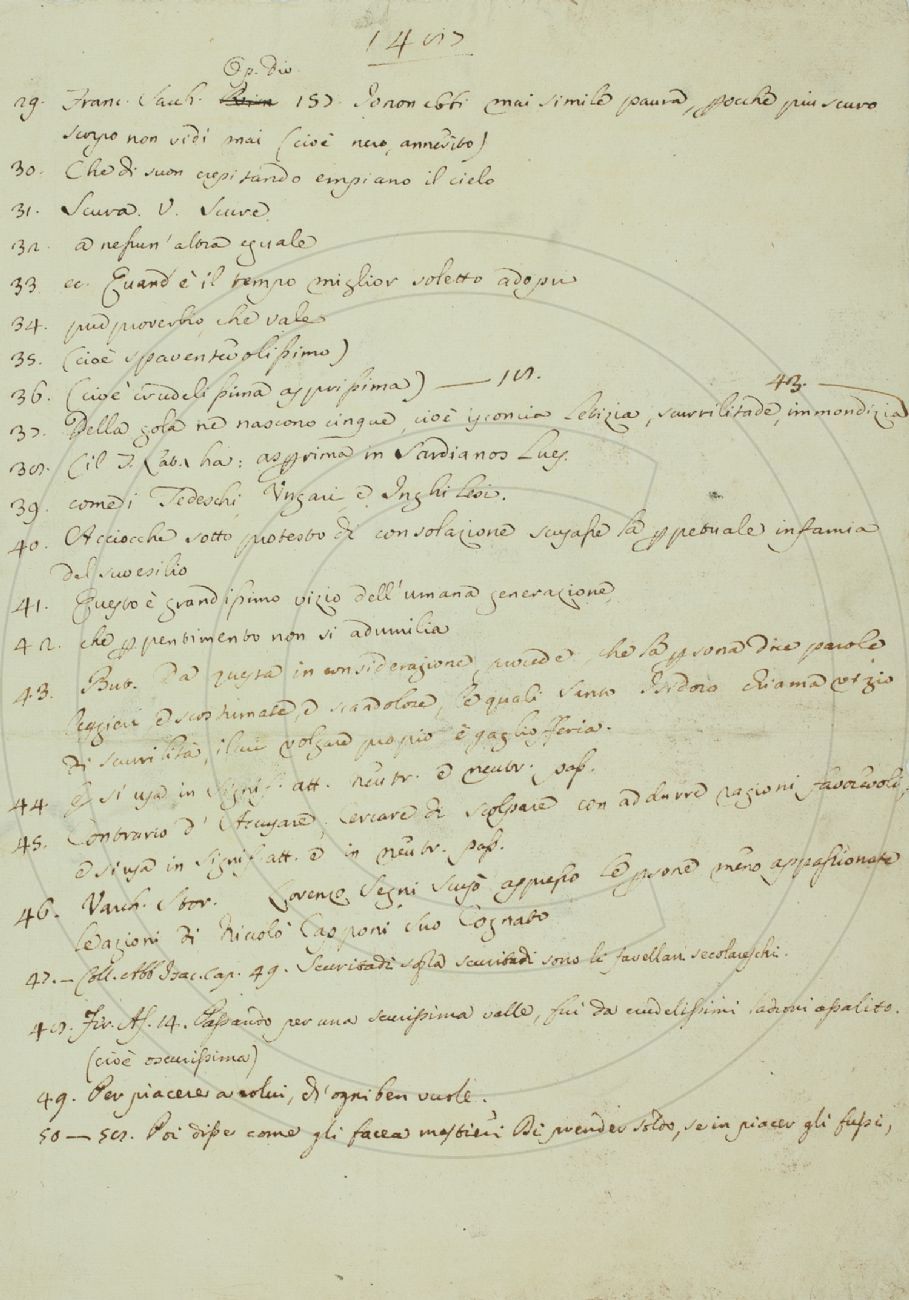 Op. Div.
29. Franc. Sacch. 157. Io non ebbi mai simile paura, perocchè più scuro
scorpo non vidi mai (cioè nero, annerito)
30. Che di suon crepitando empiano il cielo
31. Scura. V. Scure.
32. a nessun'altra eguale
33. ec. Quand'è il tempo miglior soletto adopri
34. pur proverbio, che vale
35. (cioè spaventevolissimo)
36. (cioè crudelissima asprissima)
43.
37. Della gola ne nascono cinque, cioè sconcia letizia, scurrilitade, immondizia
38. (il T. Lab. ha: asprima in Sardianos Lues.
39. come i Tedeschi, Ungari, e Inghilesi.
40. Acciocchè sotto protesto di consolazione scusasse la perpetuale infamia
del suo esilio
41. Questo è grandissimo vizio dell'umana generazione
42. che per pentimento non si adumilia
43. But. Da questa inconsiderazione procede, che la persona dice parole
leggieri e scostumate, e scandolose, le quali Santo Isidoro chiama vizio
di scurrilità, il cui volgare propio è gagliofferia.
44. E si usa in signif. att. neutr. e neutr. pass.
45. Contrario d'Accusare; Cercare di scolpare con addurre ragioni favorevoli,
e si usa in signif. att. e in neutr. pass.
46. Varch. Stor. Lorenzo Segni scusò appresso le persone meno appassionate
le azioni di Niccolò Capponi suo Cognato
47. – Coll. Abb. Isac. cap. 49. Scuritadi sopra scuritadi sono li favellari secolareschi.
48. Fir. As. 14. Passando per una scurissima valle, fui da crudelissimi ladroni assalito.
(cioè oscurissima)
49. Per piacere a colui, ch'ogni ben vuole.
50 — 58. Poi disse come gli facea mestieri Di prender soldo, se in piacer gli fussi,